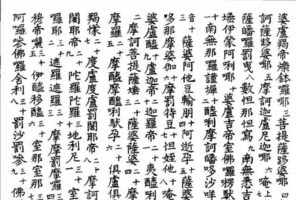 婆盧羯帝爍鉢囉耶三菩提薩埵婆
訶薩埵婆耶五摩訶迦盧尼迦耶六唵上
薩皤囉罰曳八數怛那怛寫九南無悉吉
埵伊蒙阿唎耶十婆盧吉帝室佛囉楞馱
南無那囉謹墀十二醯唎摩訶皤哆沙咩
薩婆阿他豆輸朋十四阿逝孕十五薩婆
哆那摩婆伽十六摩罰特豆十七怛姪他十八
婆盧醯十九盧迦帝二十迦羅帝二十一夷醯唎
摩訶菩提薩埵二十薩婆薩婆二十摩
摩羅摩醯摩醯唎馱孕二十俱盧俱
羯懞二十度盧度盧罰闍耶帝二十摩訶
闍耶帝二十陀羅陀羅三十地利尼三十室
囉耶三十遮羅遮羅三十摩摩罰摩囉三十
穆帝囇三十伊醯移醯三十室那室那三十
阿囉嘇佛囉舍利三十罰沙罰嘇三十佛